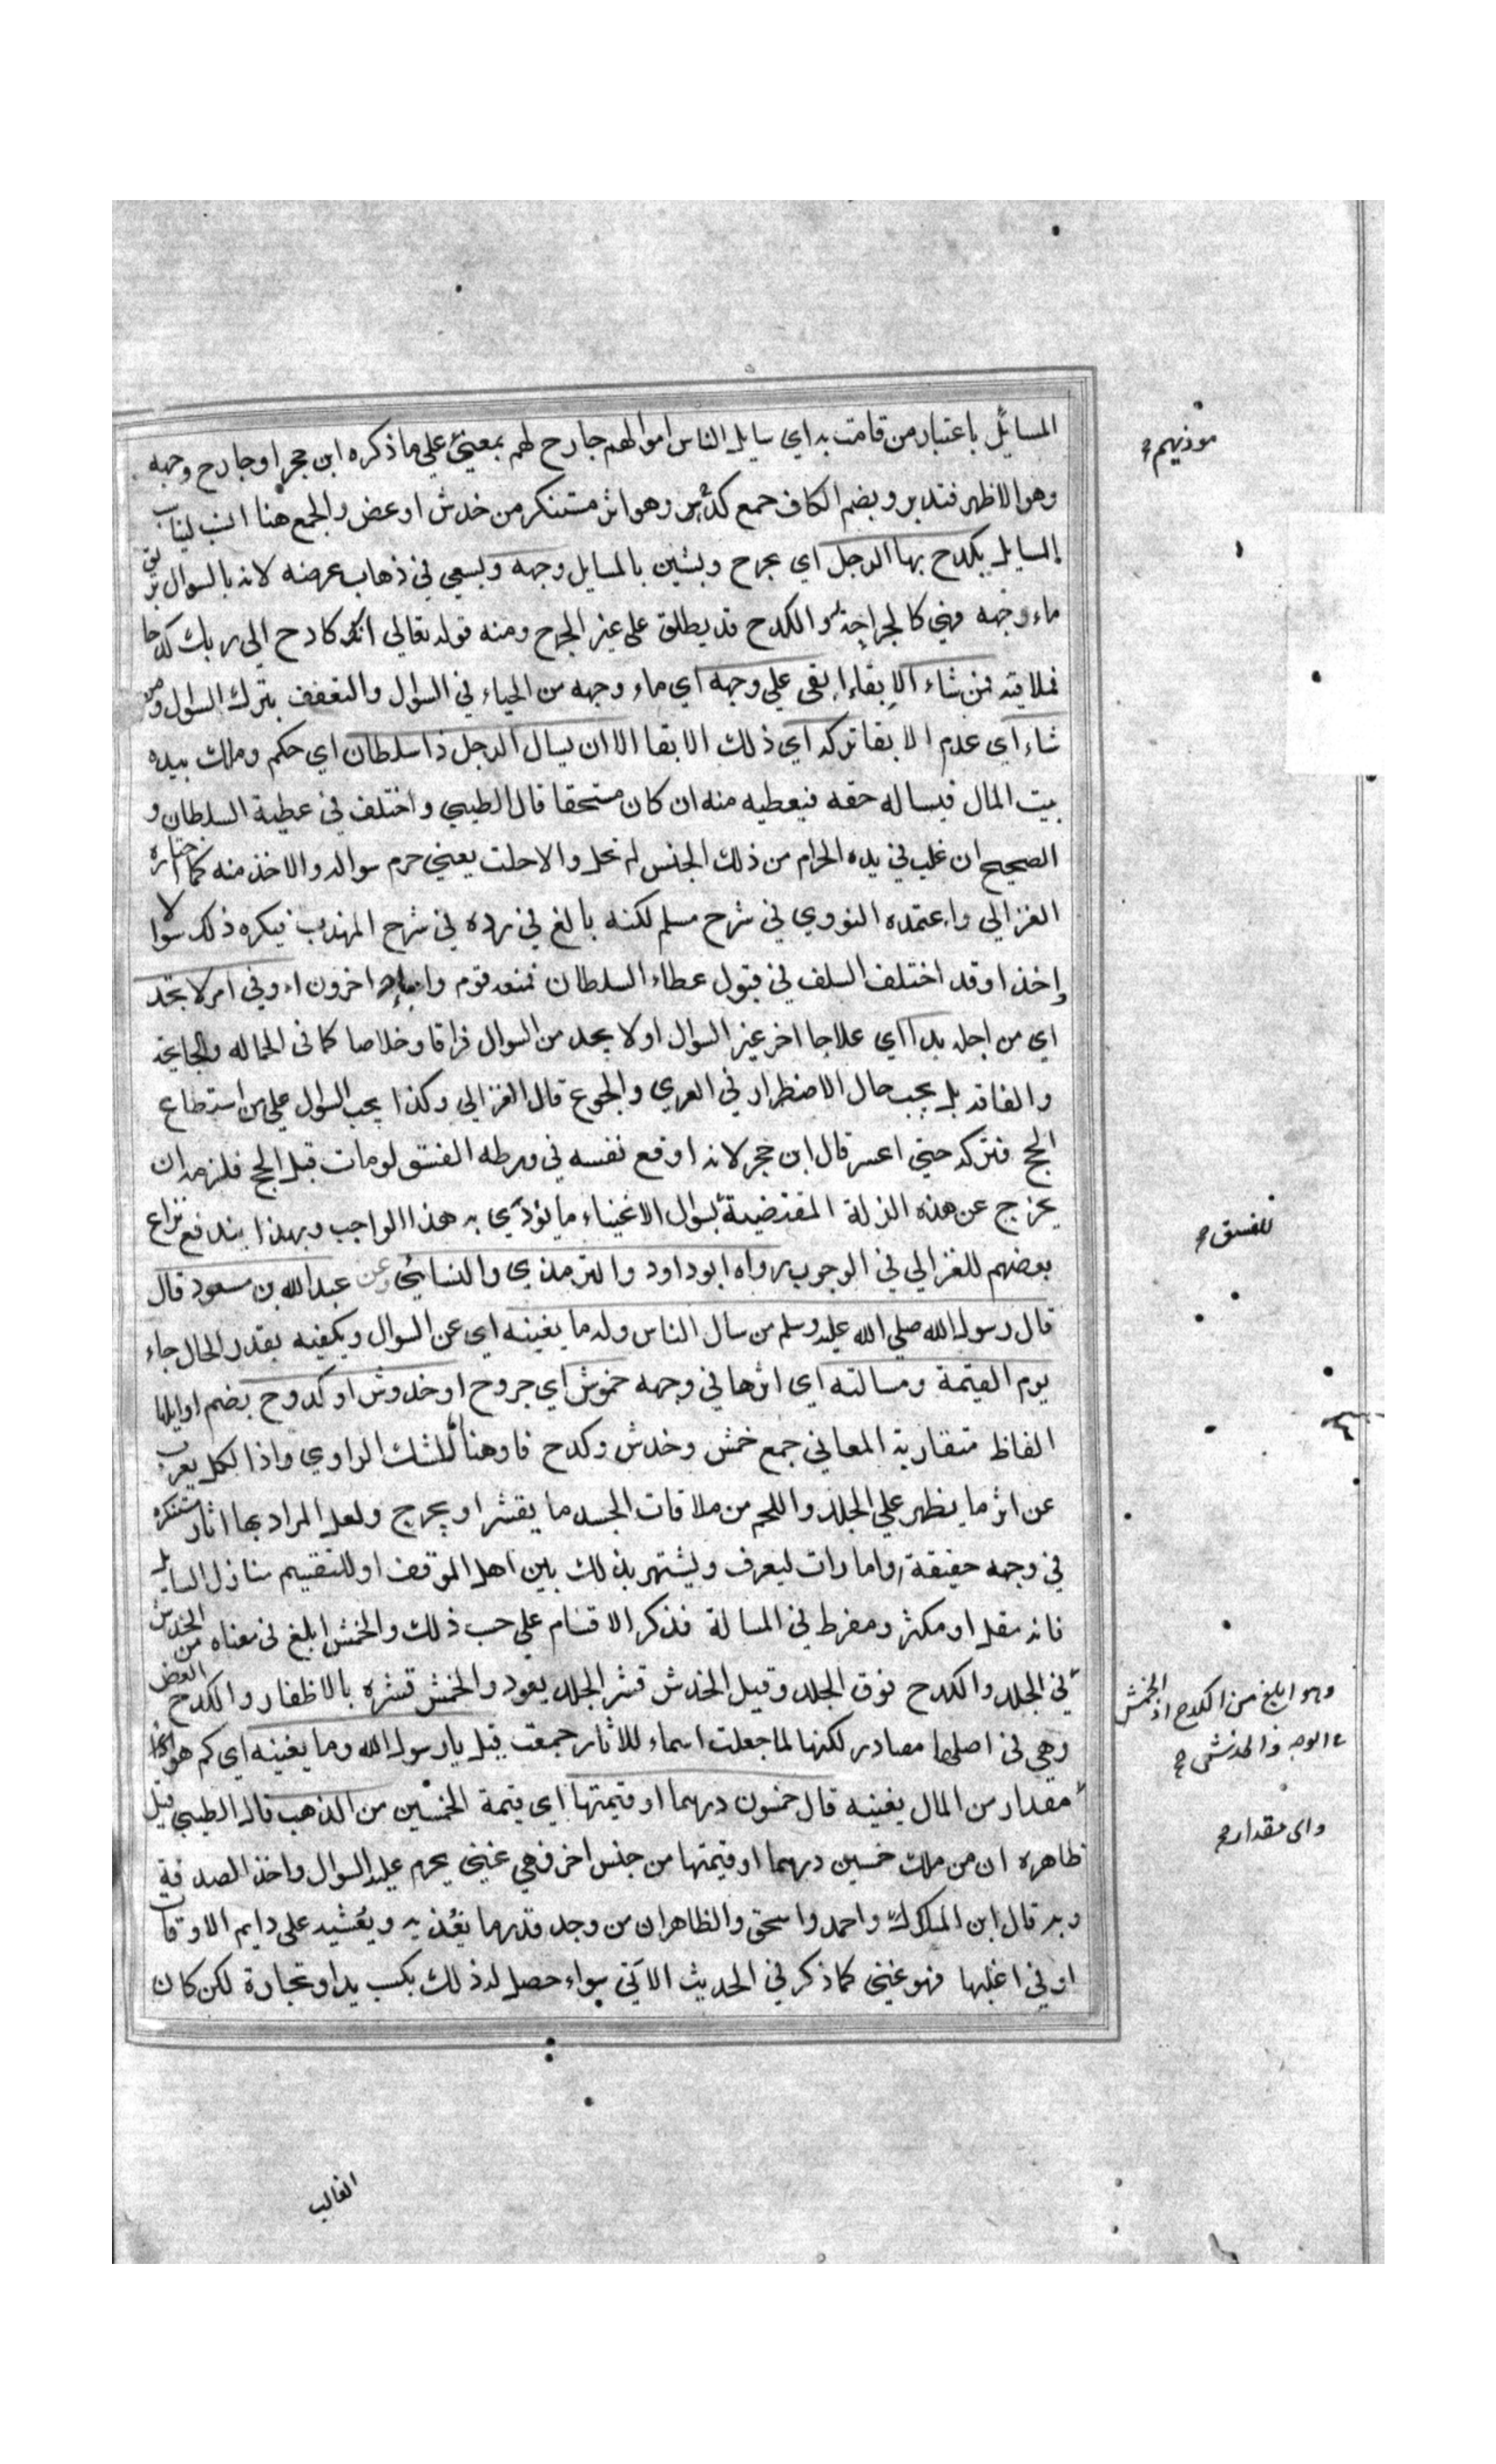 المسائل باعتبار من قامت به اي سايل الناس اموالهم جارح لهم بمعني علي ما ذكره ابن حجر او جارح وجهه
وهو الاظهر فتدبر وبضم الكاف جمع كدح وهو اثر مستنكر من خدش او عض والجمع هنا انسب ليناسب
المسايل يكدح بها الرجل اي يجرح ويشين بالمسايل وجهه ويسعي في ذهاب عرضه لانه بالسوال يريق
ماء وجهه فهي كالجراحة والكدح قد يطلق علي غير الجرح ومنه قوله تعالي انك كادح الي ربك كدحا
فملاقيه فمن شاء الابقاء ابقي علي وجهه اي ماء وجهه من الحياء في السوال والتعفف بترك السوال ومن
شاء اي عدم الابقا تركه اي ذلك الابقا الا ان يسال الرجل ذا سلطان اي حكم وملك بيده
بيت المال فيساله حقه فيعطيه منه ان كان مستحقا قال الطيبي واختلف في عطية السلطان و
الصحيح ان غلب في يده الحرام من ذلك الجنس لم تحل والا حلت يعني حرم سواله والاخذ منه كما اختاره
الغزالي واعتمده النووي في شرح مسلم لكنه بالغ في رده في شرح المهذب فيكره ذلك سوالا
واخذا وقد اختلف السلف في قبول عطاء السلطان فمنعه قوم واباحه اخرون او في امر لا يجد
اي من اجله بدا اي علاجا اخر غير السوال او لا يجد من السوال فراقا وخلاصا كما في الحماله والجايحة
والفاقه بل يجب حال الاضطرار في العري والجوع قال الغزالي وكذا يجب السوال علي من استطاع
الحج فتركه حتي اعسر قال ابن حجر لانه اوقع نفسه في ورطه الفسق لو مات قبل الحج فلزمه ان
يخرج عن هذه الزلة المقتضية بسوال الاغنياء ما يؤدي به هذا الواجب وبهذا يندفع نزاع
بعضهم للغزالي في الوجوب رواه ابو داود والترمذي والنسائي وعن عبد الله بن مسعود قال
قال رسول الله صلي الله عليه وسلم من سال الناس وله ما يغنيه اي عن السوال ويكفيه بقدر الحال جاء
يوم القيمة ومسالته اي اثرها في وجهه خموش اي جروح او خدوش او كدوح بضم اوايلها
الفاظ متقاربة المعاني جمع خمش وخدش وكدح فاو هنا للشك الراوي واذا لكل يعرب
عن اثر ما يظهر علي الجلد واللحم من ملاقات الجسد ما يقشر او يجرح ولعل المراد بها اثار مستنكره
في وجهه حقيقة او امارات ليعرف ويشتهر بذلك بين اهل الموقف او للتقسيم منازل السايل
فانه مقل او مكثر ومفرط في المسالة فذكر الاقسام علي حسب ذلك والخمش ابلغ في معناه من الخدش
في الجلد والكدح فوق الجلد وقيل الخدش قشر الجلد بعود والخمش قشره بالاظفار والكدح العض
وهي في اصلها مصادر لكنها لما جعلت اسماء للاثار جمعت قيل يا رسول الله وما يغنيه اي كم هو
مقدار من المال يغنيه قال خمسون درهما او قيمتها اي قيمة الخمسين من الذهب قال الطيبي قيل
ظاهره ان من ملك خمسين درهما او قيمتها من جنس اخر فهي غني يحرم عليه السوال واخذ الصدقة
وبه قال ابن المبارك واحمد واسحق والظاهر ان من وجد قدر ما يغذيه ويعشيه علي دايم الاوقات
او في اغلبها فهو غني كما ذكر في الحديث الآتي سواء حصل له ذلك بكسب يد او تجارة لكن كان
موذيهم
للفسق
وهو ابلغ من الكدح اذ الخمش
في الوجه والخدش
واي مقدار
الغالب